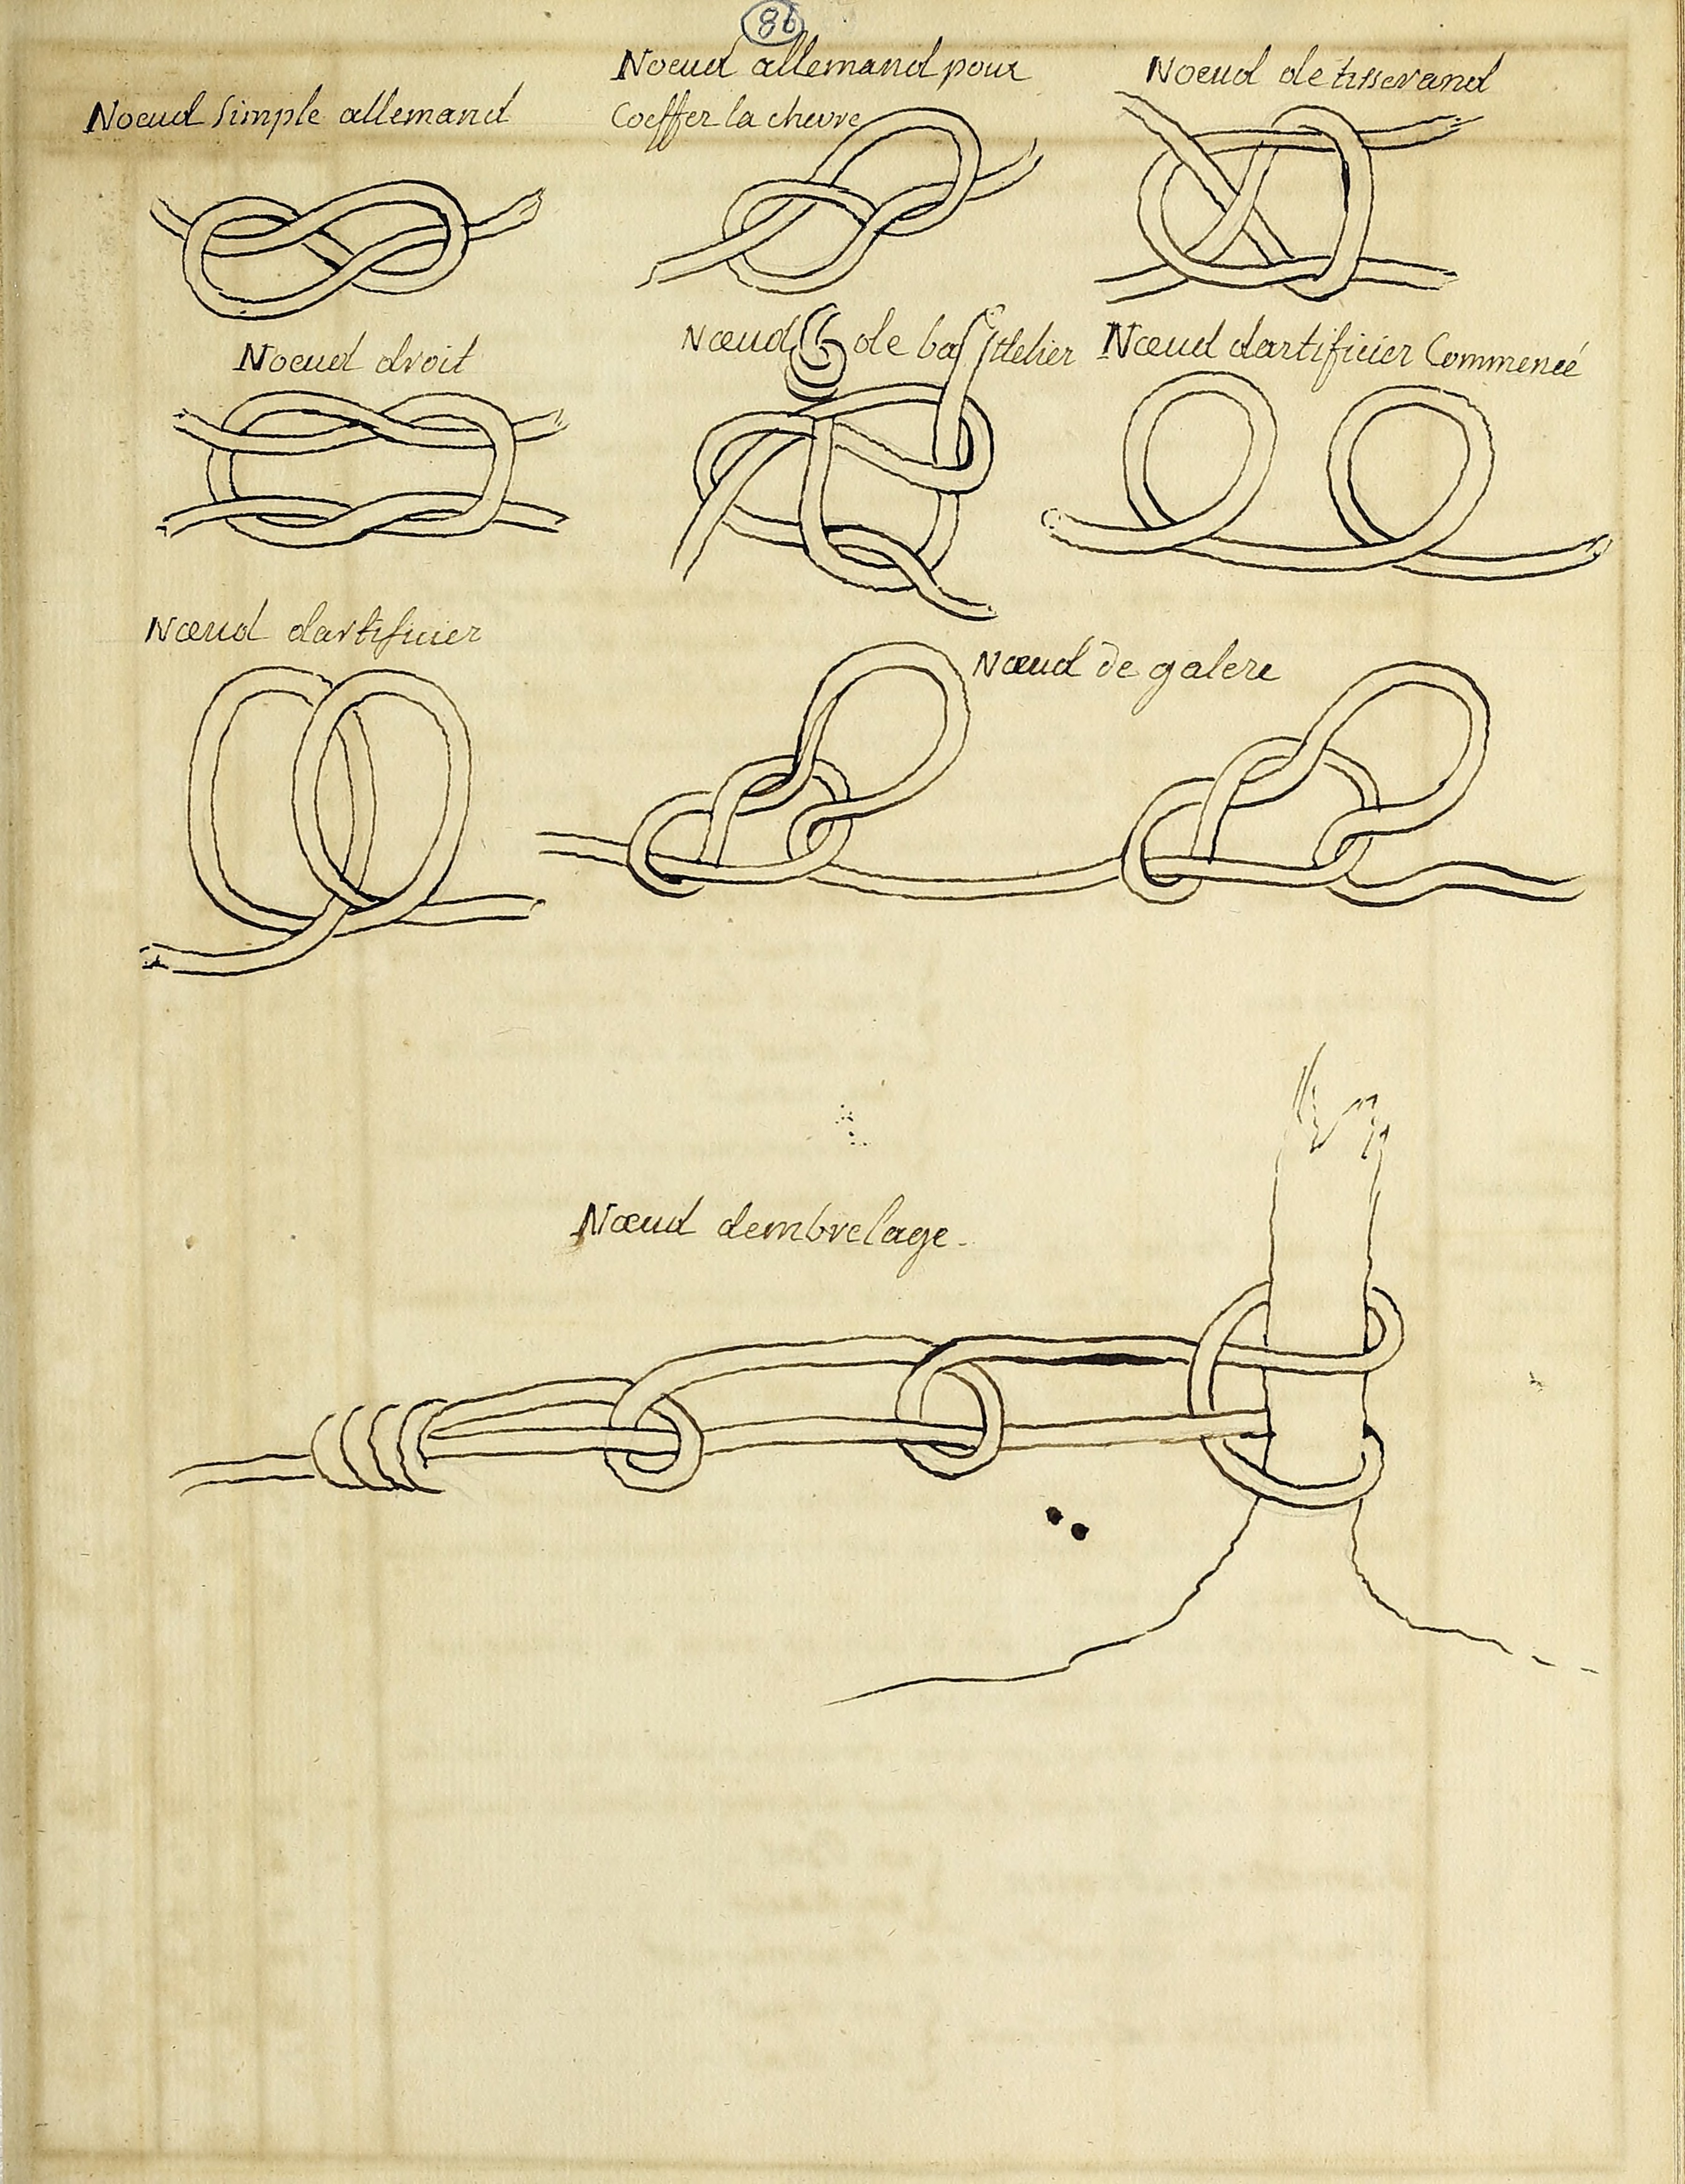 86
Noeud Simple allemand
Noeud allemand pour
Coeffer la chevre
Noeud de tisserand
Noeud droit
Nœud de battelier
Nœud dartificier Commencé
Nœud dartificier
Nœud de galere
Nœud dembrelage.